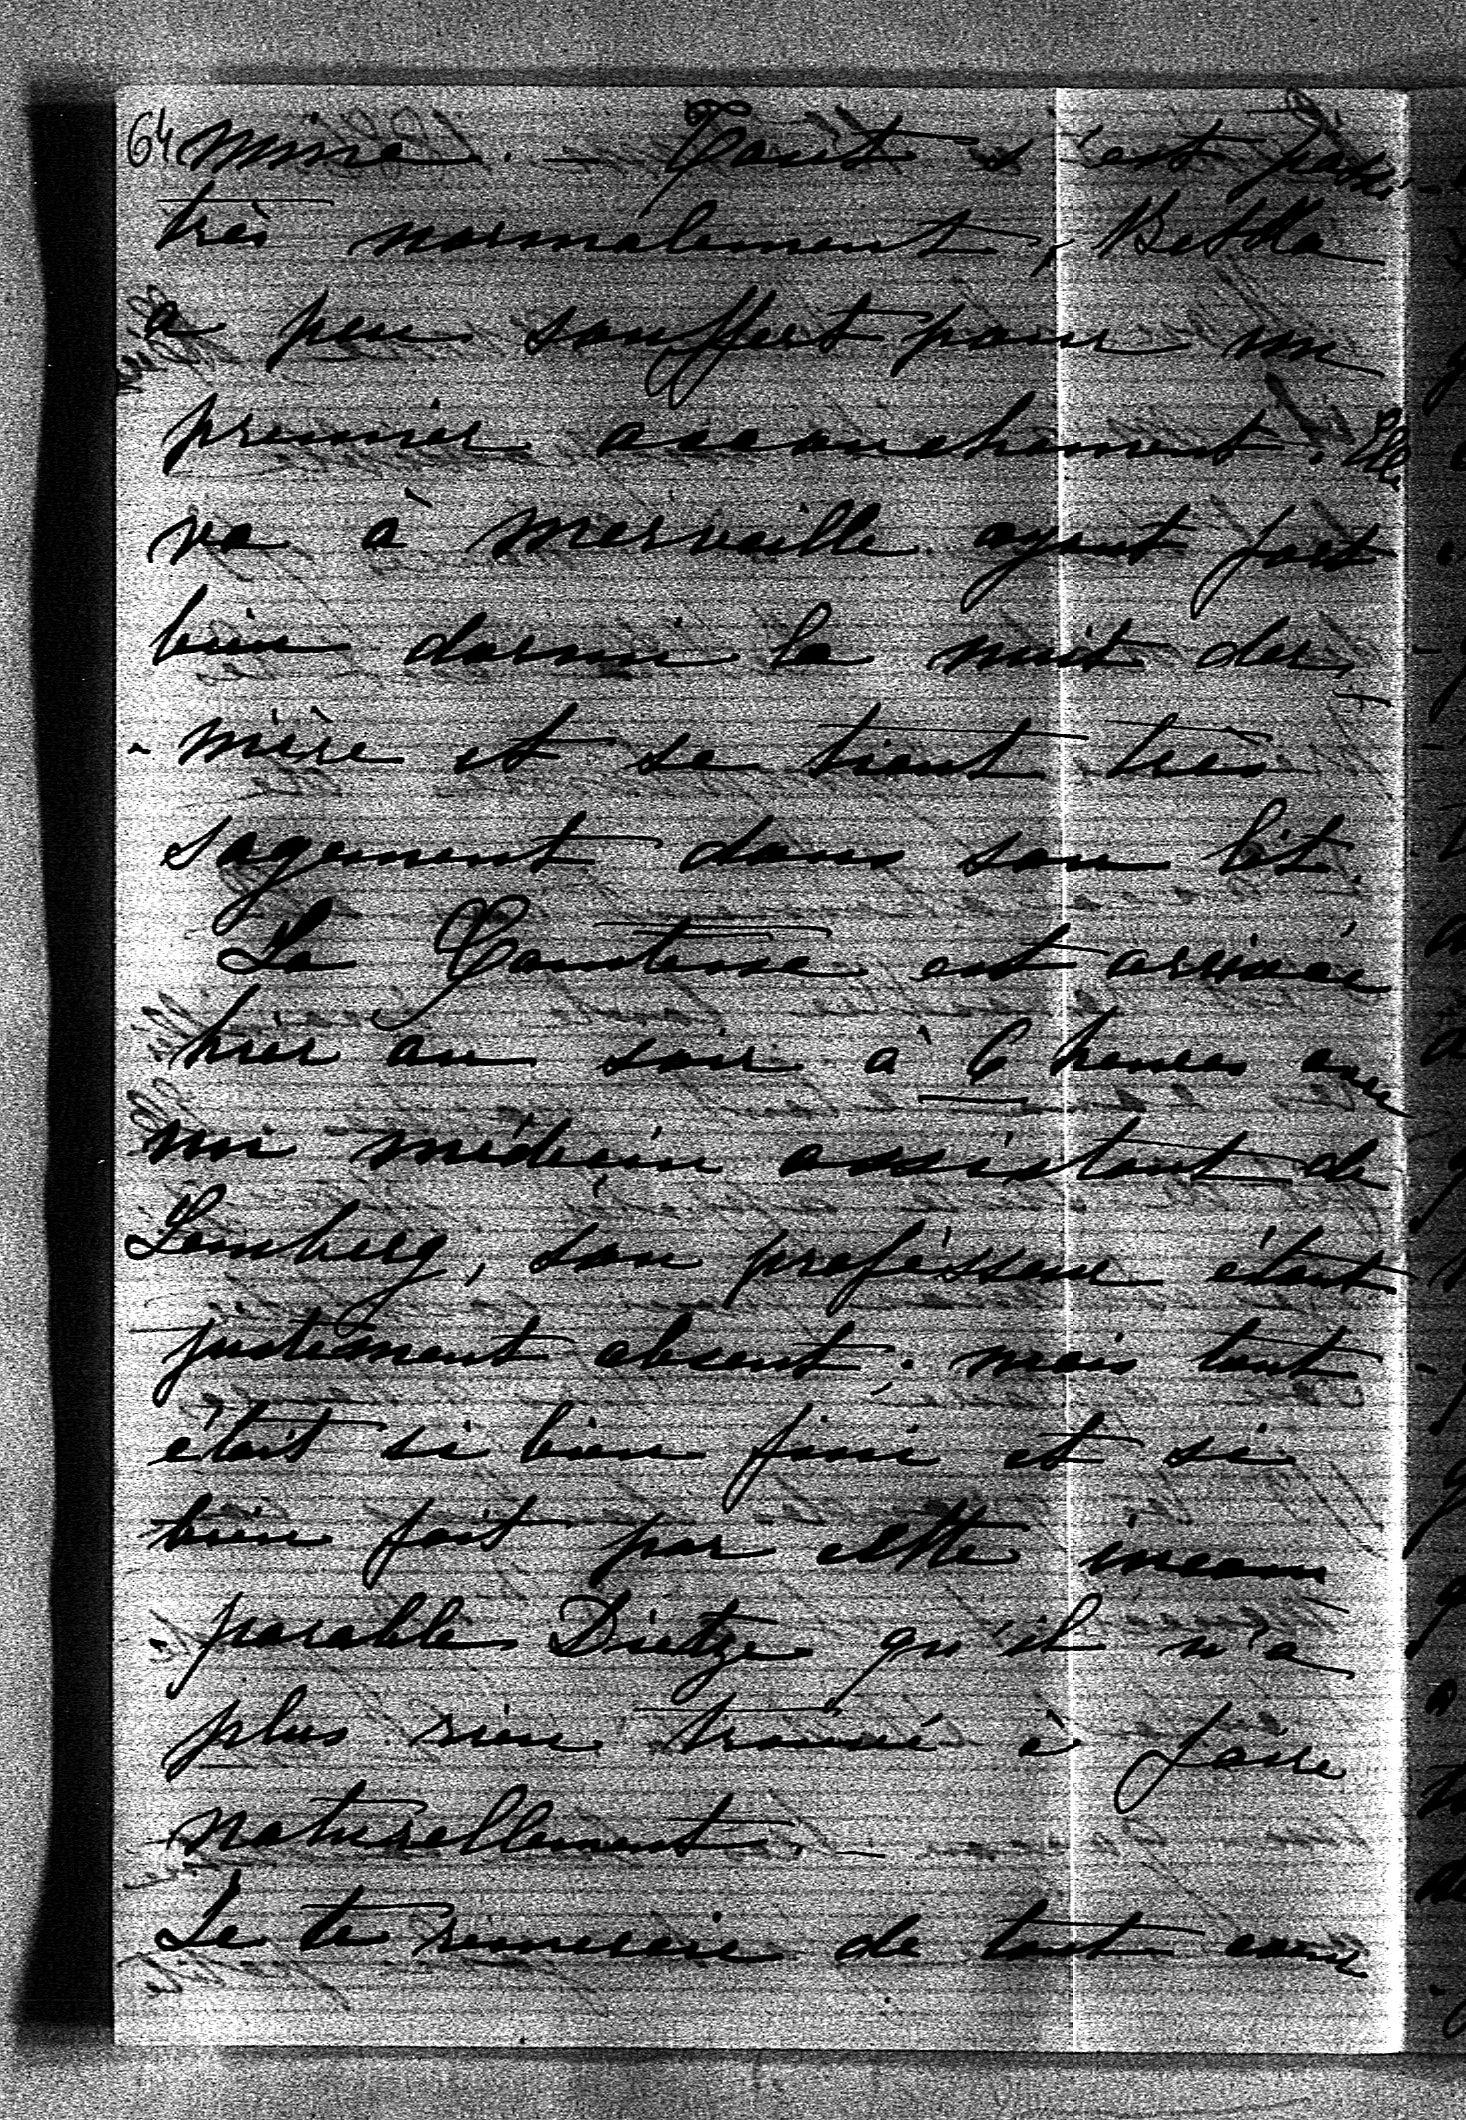 64 mine. — Tout s'est passé
très normalement, Betka
a peu souffert pour un
premier accouchement. Elle
va à merveille ayant fort
bien dormi la nuit der,
- nière et se tient très
sagement dans son lit.
La Comtesse est arrivée
hier au soir à 6 heures avec
un médecin assistant de
Lemberg, son professeur étant
justement absent; mais tout
était si bien fini et si
bien fait par cette incom
- parable Dietze qu'il n'a
plus rien trouvé à faire
naturellement. —
Je te remercie de tout cœur